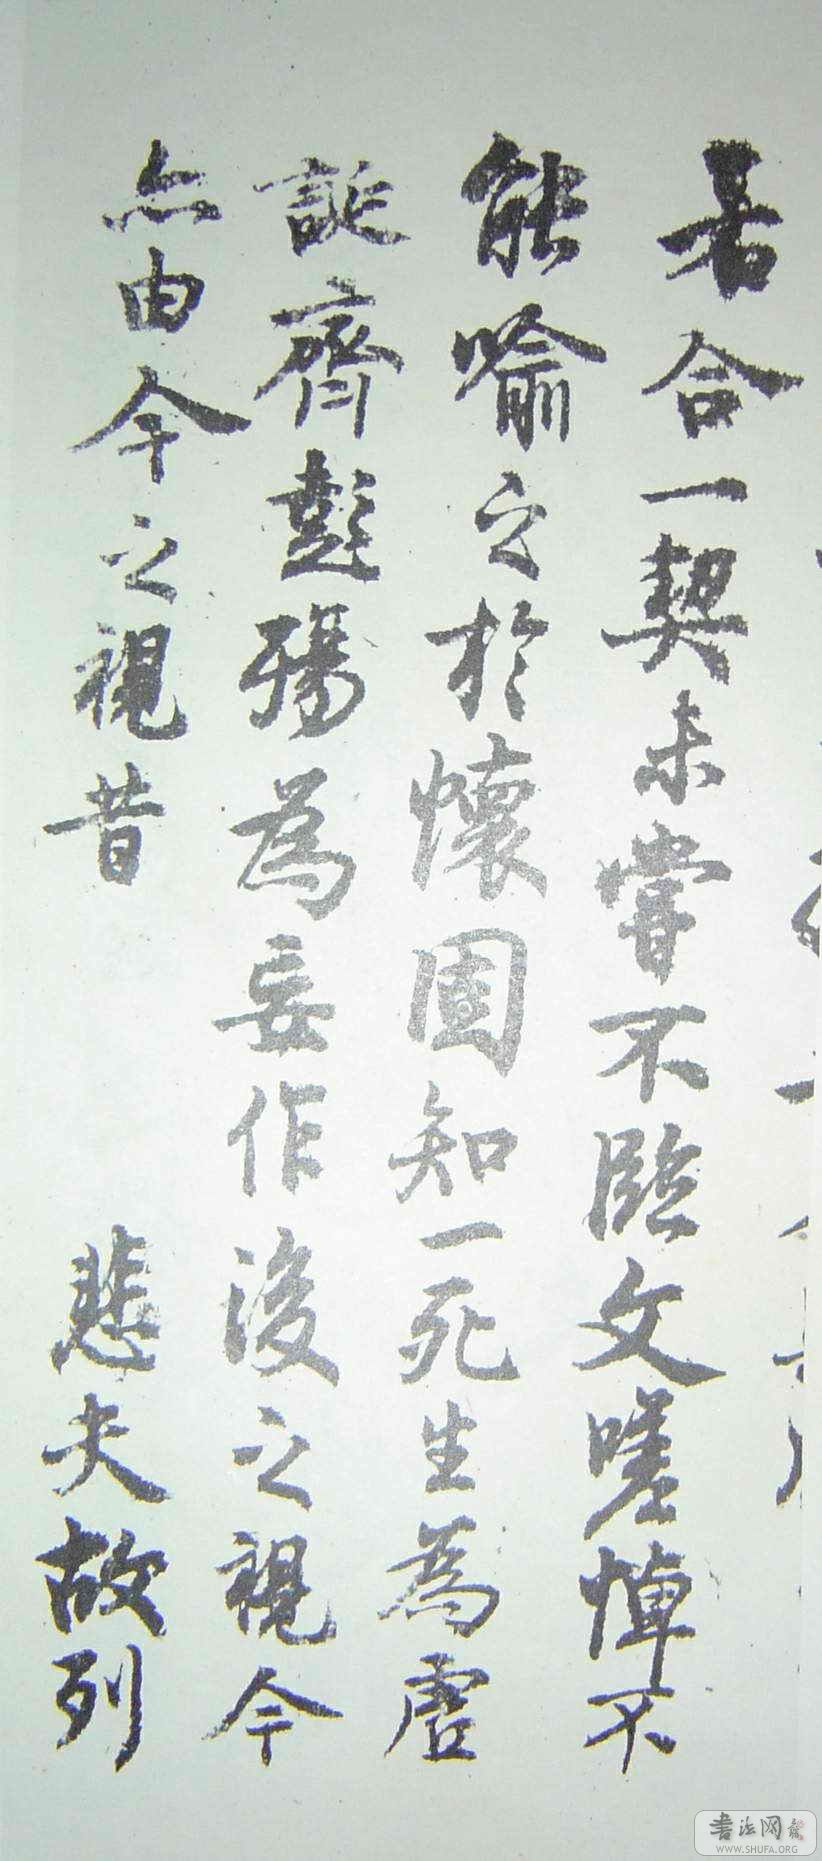 若合一契未嘗不臨文嗟悼不
能喻之於懷固知一死生為虛
誕齊彭殤為妄作後之視今
亦由今之視昔 悲夫故列
書法网
WWW.SHUFA.ORG